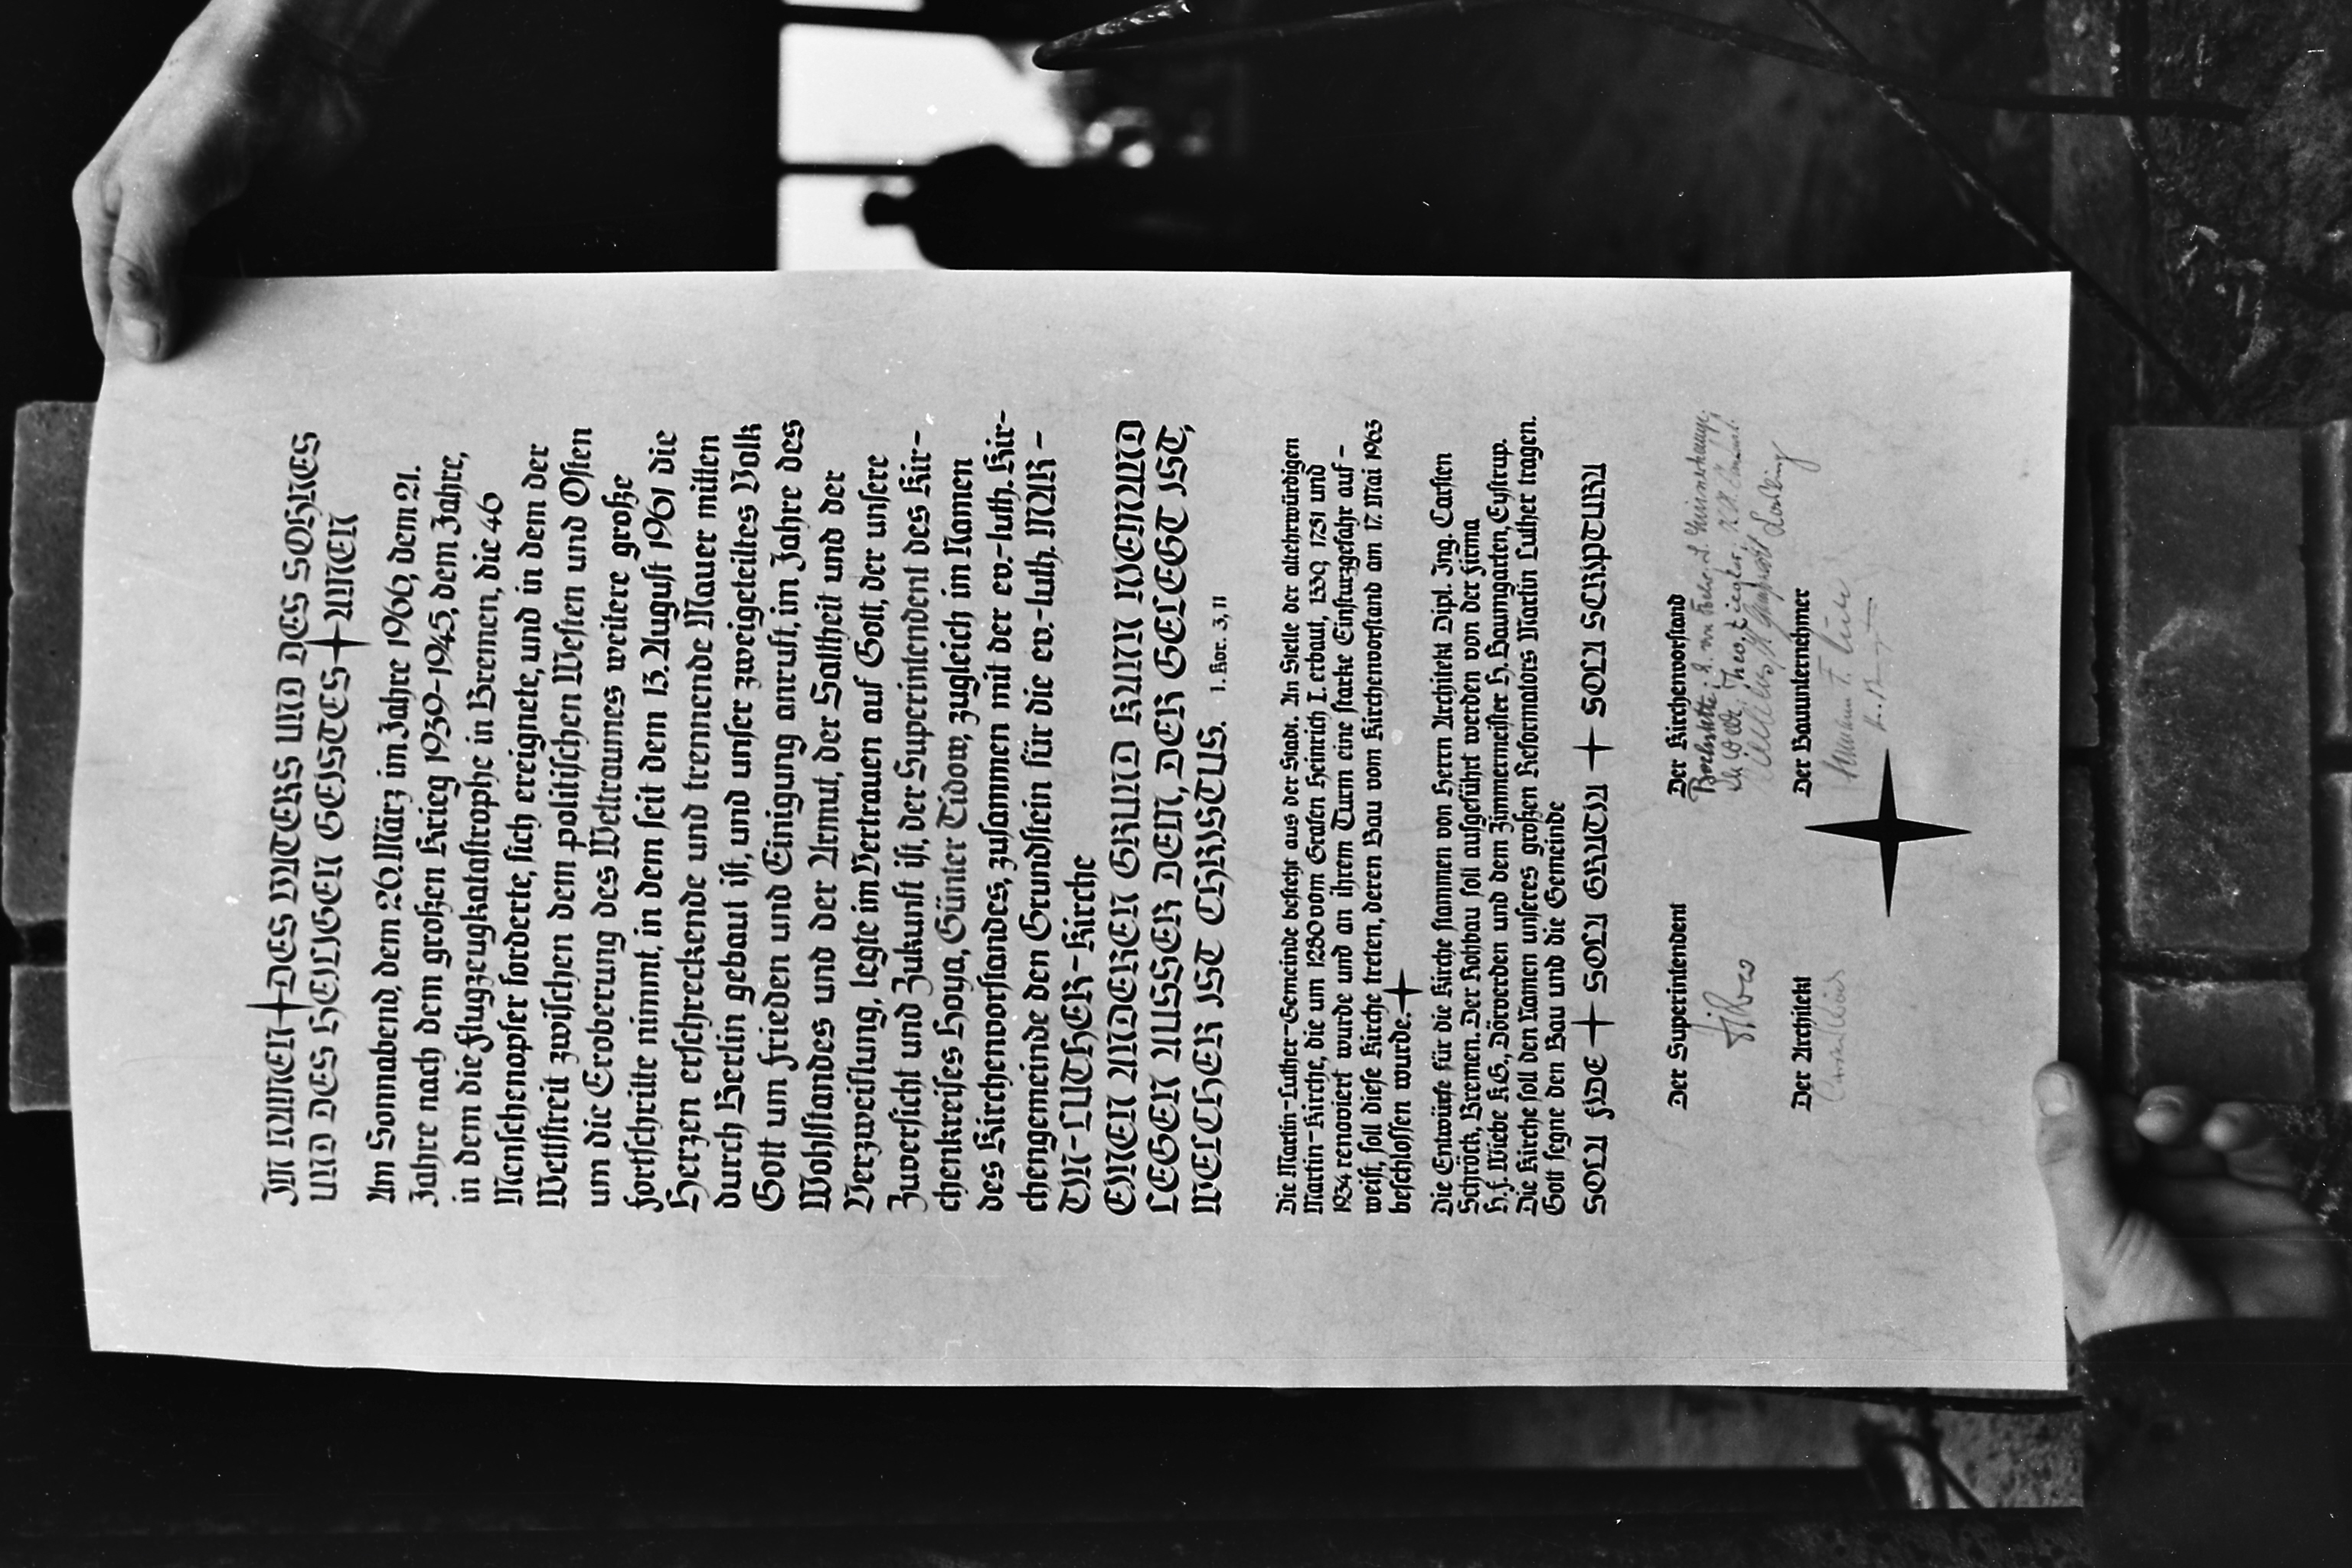 IM NAMEN + DES VATERS UND DES SOHNES
UND DES HEILIGEN GEISTES + AMEN
Am Sonnabend, dem 26. März im Jahre 1966, dem 21.
Jahre nach dem großen Krieg 1939-1945, dem Jahre,
in dem die Flugzeugkatastrophe in Bremen, die 46
Menschenopfer forderte, sich ereignete, und in dem der
Wettstreit zwischen dem politischen Westen und Osten
um die Eroberung des Weltraumes weitere große
Fortschritte nimmt, in dem seit dem 13. August 1961 die
Herzen erschreckende und trennende Mauer mitten
durch Berlin gebaut ist, und unser zweigeteiltes Volk
Gott um Frieden und Einigung anruft, im Jahre des
Wohlstandes und der Armut, der Sattheit und der
Verzweiflung, legte im Vertrauen auf Gott, der unsere
Zuversicht und Zukunft ist, der Superintendent des Kir-
chenkreises Hoya, Günter Tidow, zugleich im Namen
des Kirchenvorstandes, zusammen mit der ev.-luth. Kir-
chengemeinde den Grundstein für die ev.-luth. MAR-
TIN-LUTHER-Kirche
EINEN ANDEREN GRUND KANN NIEMAND
LEGEN AUSSER DEM, DER GELEGT IST,
WELCHER IST CHRISTUS. 1. Kor. 3, 11
Die Martin-Luther-Gemeinde besteht aus der Stadt. An Stelle der altehrwürdigen
Martin-Kirche, die um 1280 vom Grafen Heinrich I. erbaut, 1530, 1751 und
1934 renoviert wurde und an ihrem Turm eine starke Einsturzgefahr auf-
weist, soll diese Kirche treten, deren Bau vom Kirchenvorstand am 17. Mai 1963
beschlossen wurde. +
Die Entwürfe für die Kirche stammen von Herrn Architekt Dipl. Ing. Carsten
Schröck, Bremen. Der Rohbau soll ausgeführt werden von der Firma
H.F. Wiebe K.G., Dörverden und dem Zimmermeister H. Baumgarten, Eystrup.
Die Kirche soll den Namen unseres großen Reformators Martin Luther tragen.
Gott segne den Bau und die Gemeinde
SOLA FIDE + SOLA GRATIA + SOLA SCRIPTURA
Der Superintendent
Tidow
Der Kirchenvorstand
Der Architekt
Der Bauunternehmer